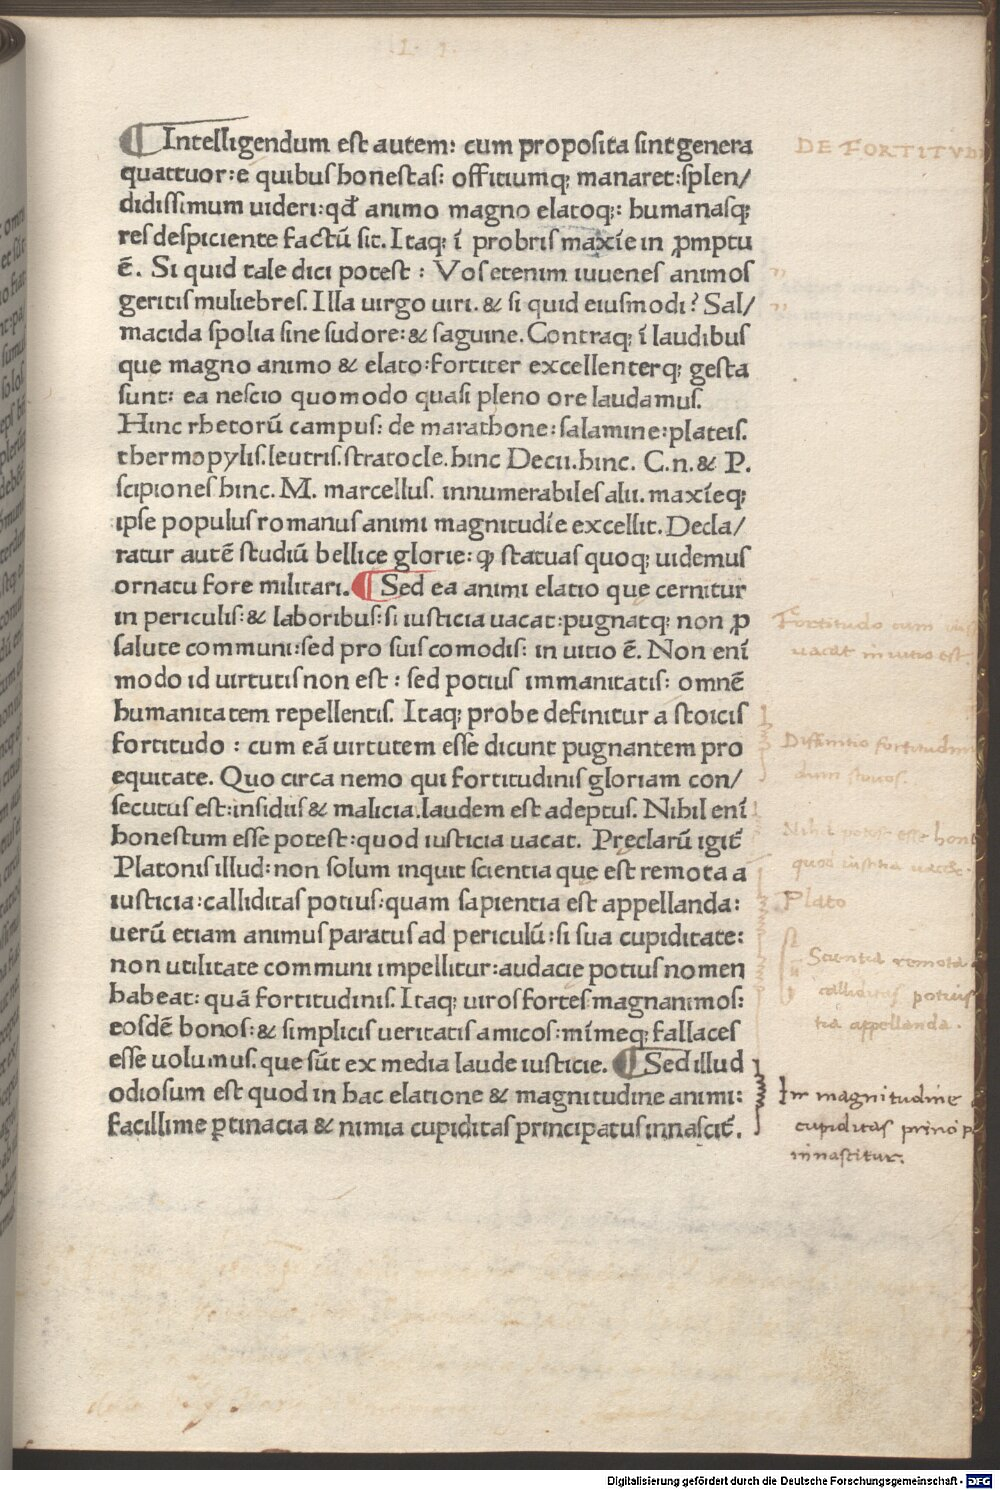 ¶ Intelligendum est autem: cum proposita sint genera
quattuor: e quibus honestas: offitiumq; manaret: splen/
didissimum uideri: qđ animo magno elatoq;: humanasq;
res despiciente factū sit. Itaq; ī probris maxīe in ꝓmptu
ē. Si quid tale dici potest : Vos etenim iuuenes animos
geritis muliebres. Illa uirgo uiri. & si quid eiusmodi? Sal/
macida spolia sine sudore: & saguine. Contraq; ī laudibus
que magno animo & elato: fortiter excellenterq; gesta
sunt: ea nescio quomodo quasi pleno ore laudamus.
Hinc rhetorū campus: de marathone: salamine: plateis.
thermopylis. leutris. stratocle. hinc Decii. hinc. C.n. & P.
scipiones hinc. M. marcellus. innumerabiles alii. maxīeq;
ipse populus romanus animi magnitudīe excellit. Decla/
ratur autē studiū bellice glorie: ꝙ statuas quoq; uidemus
ornatu fore militari. ¶ Sed ea animi elatio que cernitur
in periculis: & laboribus: si iusticia uacat: pugnatq; non ꝓ
salute communi: sed pro suis comodis: in uitio ē. Non enī
modo id uirtutis non est : sed potius immanitatis: omnē
humanitatem repellentis. Itaq; probe definitur a stoicis
fortitudo : cum eā uirtutem esse dicunt pugnantem pro
equitate. Quo circa nemo qui fortitudinis gloriam con/
secutus est: insidiis & malicia. laudem est adeptus. Nihil enī
honestum esse potest: quod iusticia uacat. Preclarū igit̄
Platonis illud: non solum inquit scientia que est remota a
iusticia: calliditas potius: quam sapientia est appellanda:
uerū etiam animus paratus ad periculū: si sua cupiditate:
non utilitate communi impellitur: audacie potius nomen
habeat: quā fortitudinis. Itaq; uiros fortes magnanimos:
eosdē bonos: & simplicis ueritatis amicos: mīmeq; fallaces
esse uolumus. que sūt ex media laude iusticie. ¶ Sed illud
odiosum est quod in hac elatione & magnitudine animi:
facillime ꝑtinacia & nimia cupiditas principatus innascit̄.
DE FORTITVDI
Fortitudo cum
uacat in uitio est.
Diffinitio fortitudin
Nihil potest esse hone
quod iustitia uacet.
Plato
Scientia remota
calliditas potius
tia appellanda.
In magnitudine
cupiditas princip
innascitur.
Digitalisierung gefördert durch die Deutsche Forschungsgemeinschaft - DFG